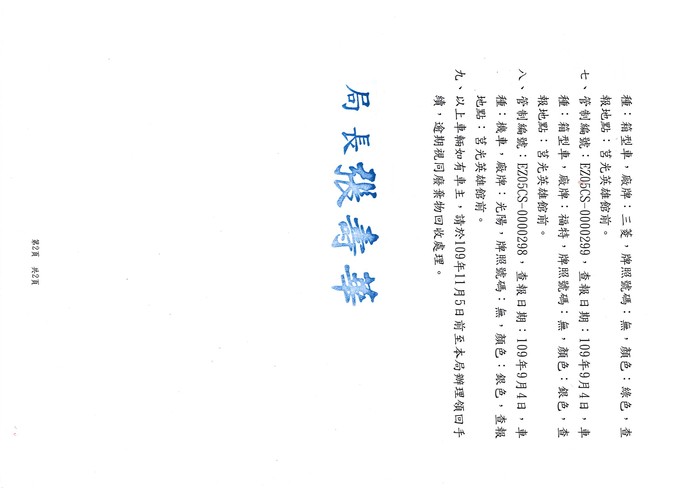 種：箱型車，廠牌：三菱，牌照號碼：無，顏色：綠色，查
報地點：莒光英雄館前。
七、管制編號：EZ05CS-0000299，查報日期：109年9月4日，車
種：箱型車，廠牌：福特，牌照號碼：無，顏色：銀色，查
報地點：莒光英雄館前。
八、管制編號：EZ05CS-0000298，查報日期：109年9月4日，車
種：機車，廠牌：光陽，牌照號碼：無，顏色：銀色，查報
地點：莒光英雄館前。
九、以上車輛如有車主，請於109年11月5日前至本局辦理領回手
續，逾期視同廢棄物回收處理。
局長張壽華
第2頁 共2頁